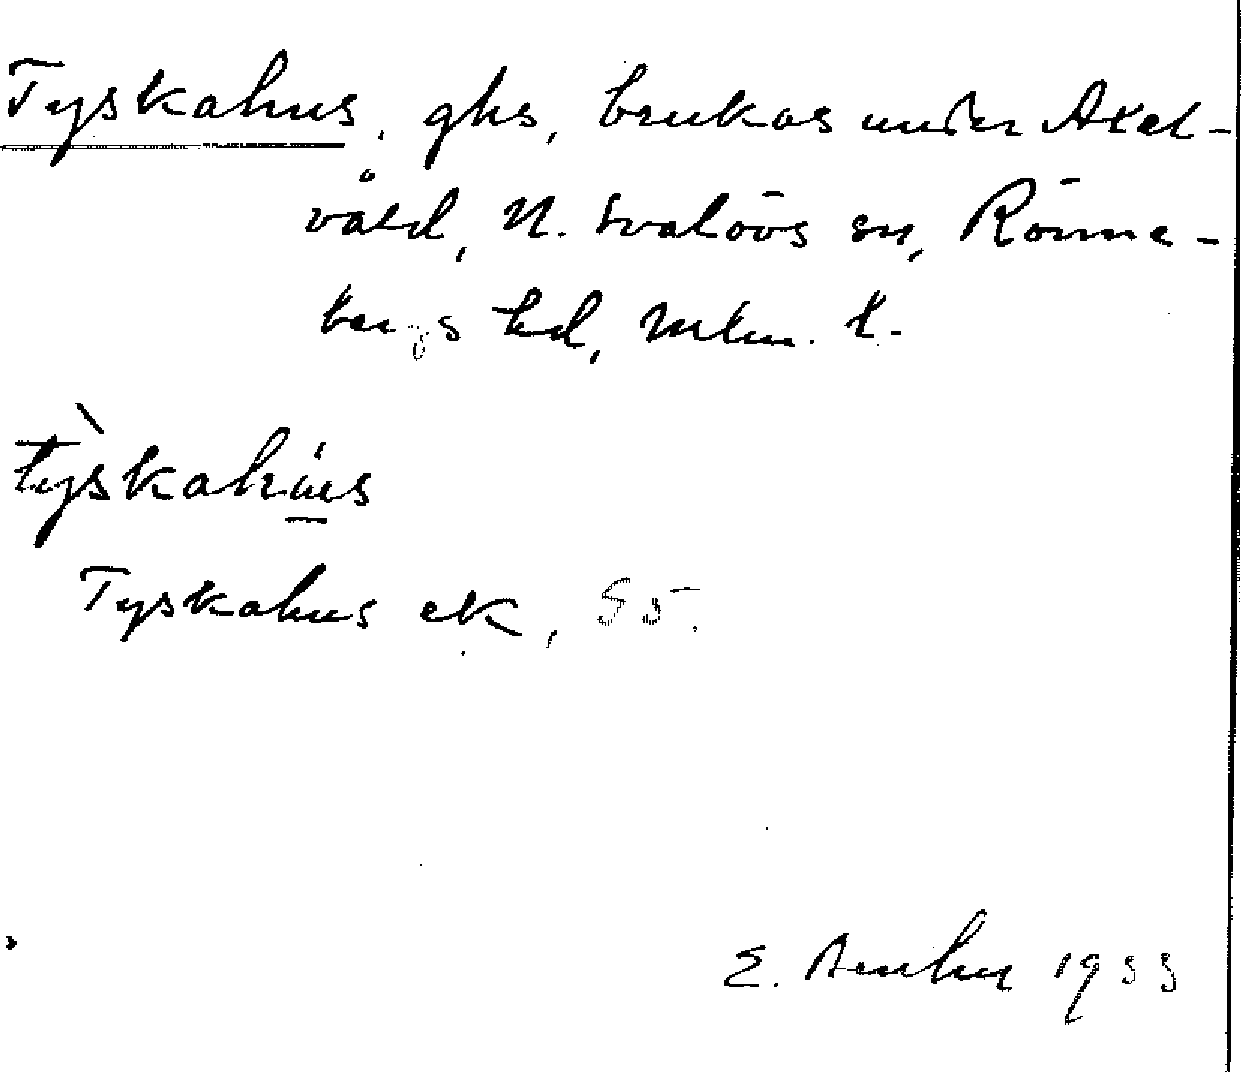 Tyskahus, ghs, brukas under Axel-
våld, N. Svalövs sn, Rönne-
bergs hd, Mlm. l.
tỳskahús
Tyskahus ek, 55.
E. 1933